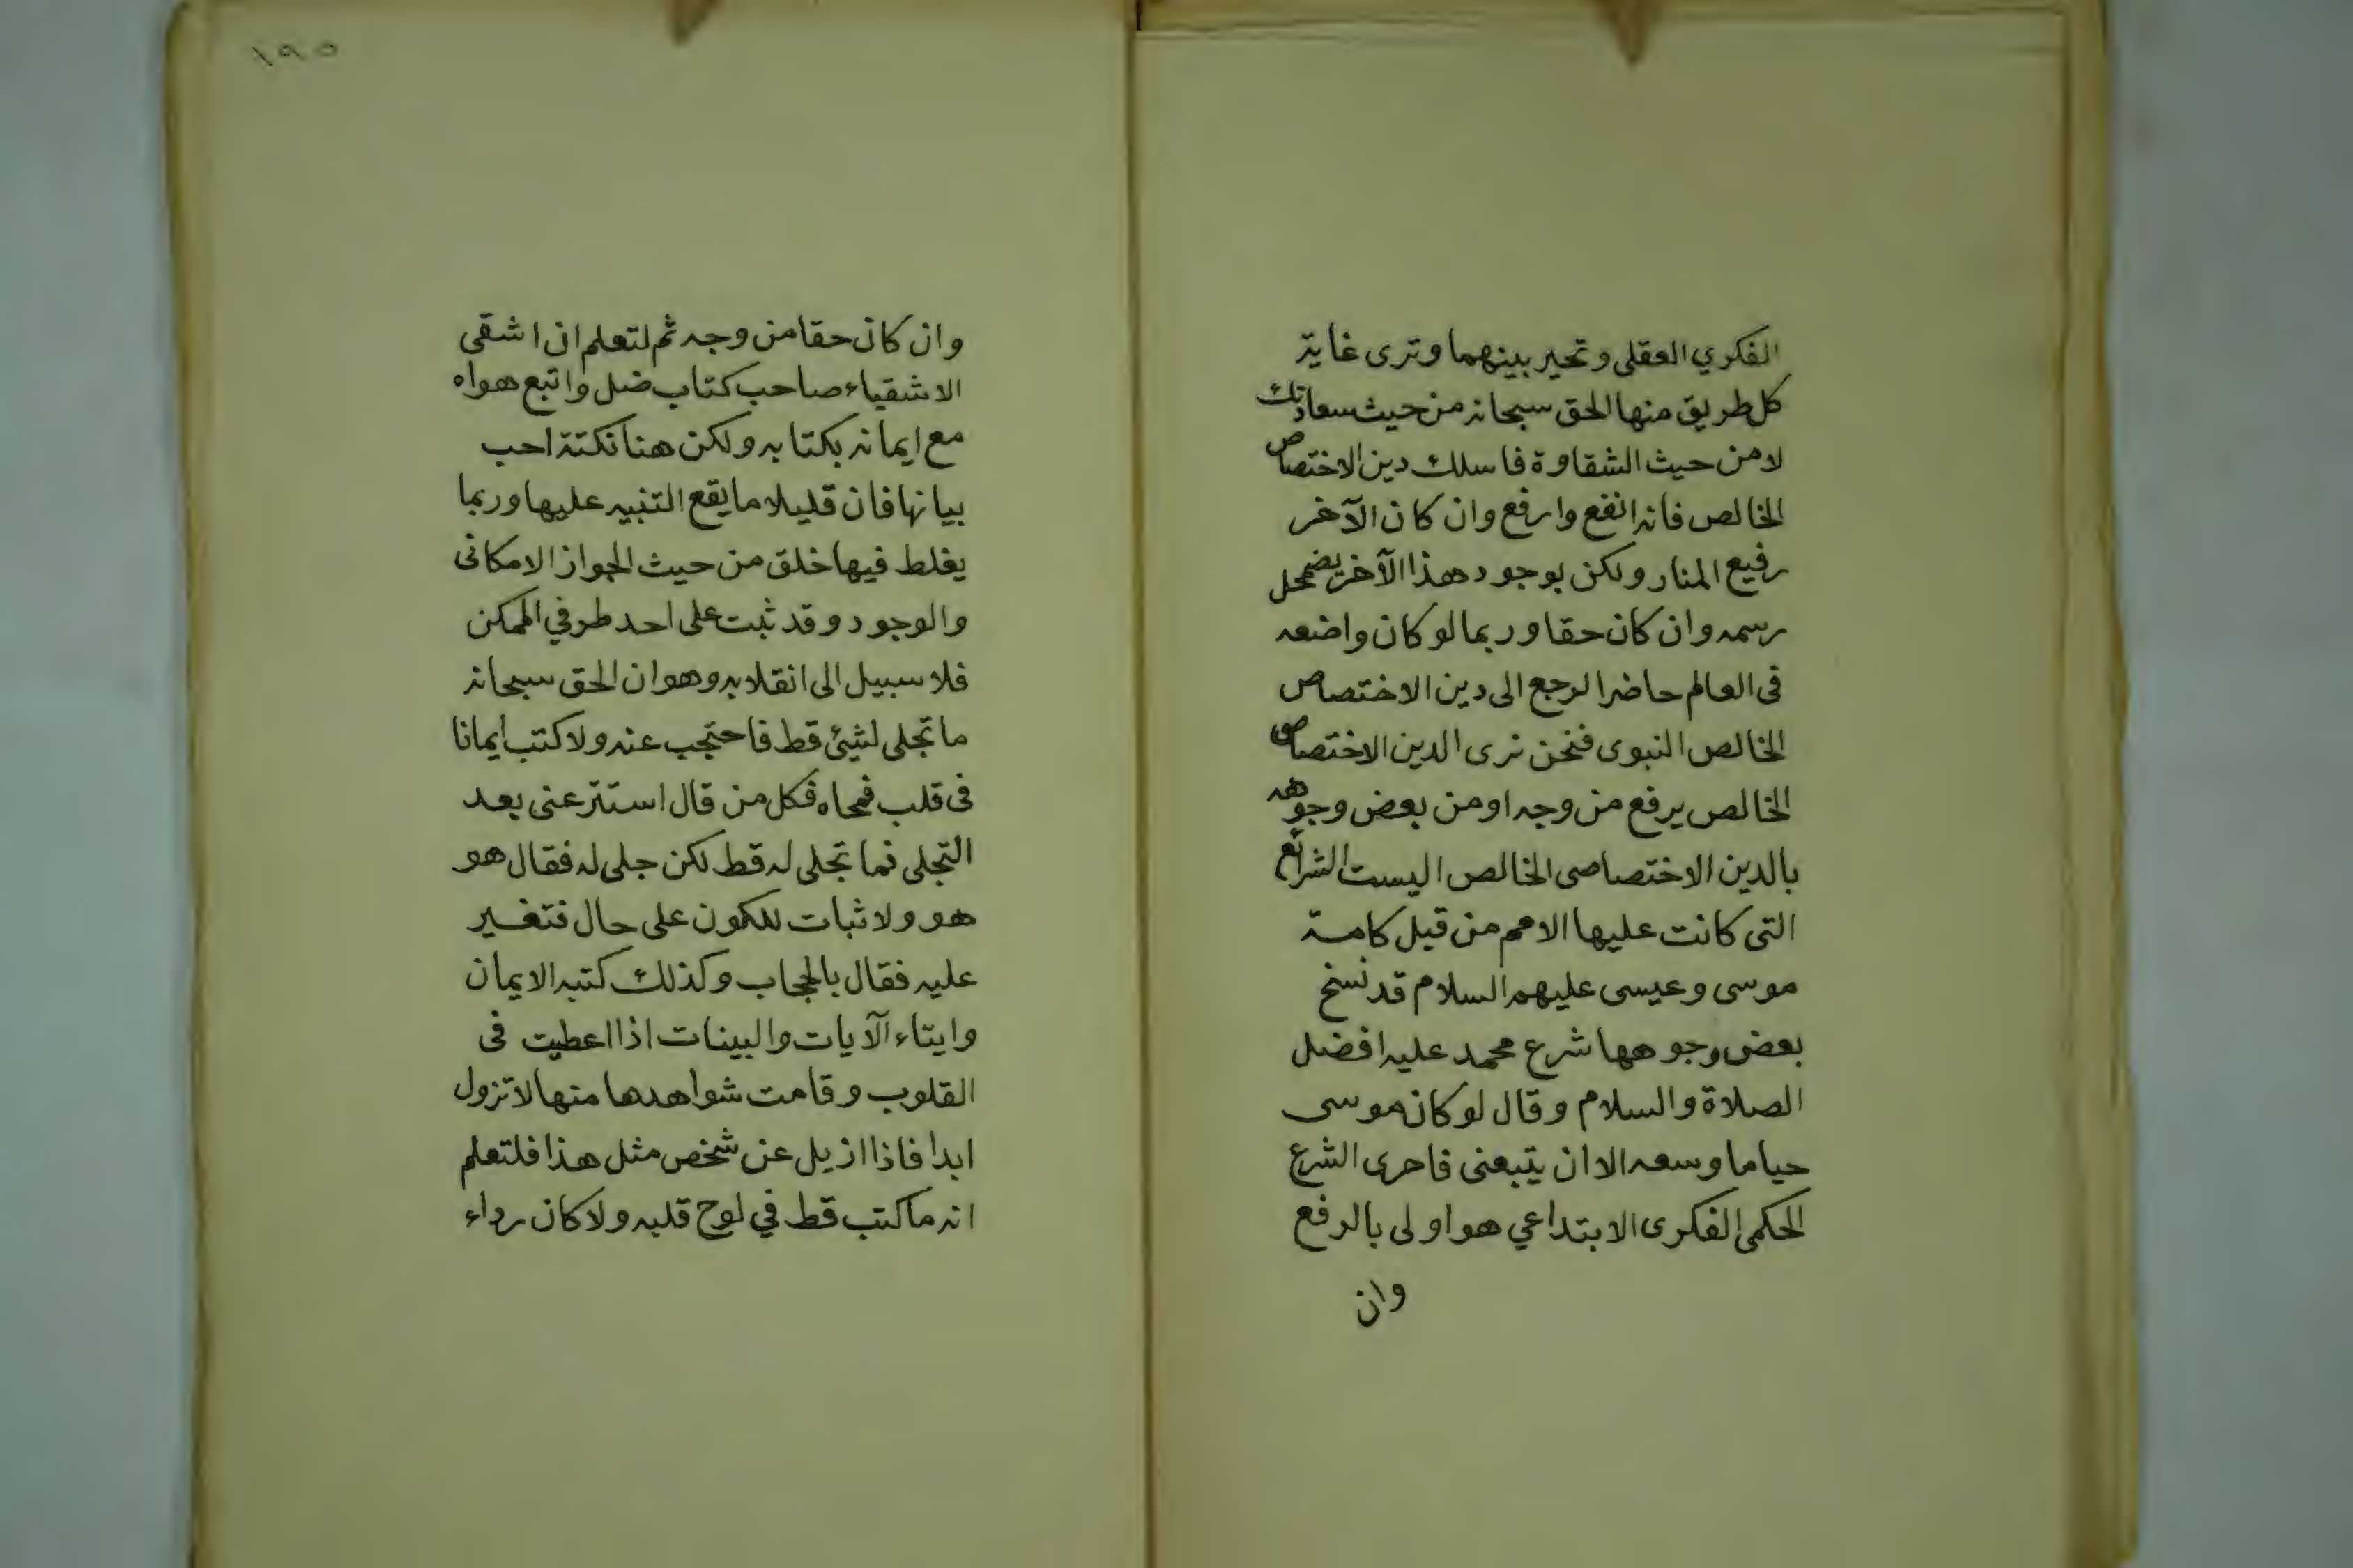 الفكري العقلى وتحير بينهما وترى غاية
كل طريق منها الحق سبحانه من حيث سعادتك
لا من حيث الشقاوة فاسلك دين الاختصاص
الخالص فانه انفع وارفع وان كان الآخر
رفيع المنار ولكن بوجود هذا الآخر يضمحل
رسمه وان كان حقا وربما لو كان واضعه
فى العالم حاضرا لرجع الى دين الاختصاص
الخالص النبوى فنحن نرى الدين الاختصاصى
الخالص يرفع من وجه او من بعض وجوهه
بالدين الاختصاصى الخالص اليست الشرائع
التى كانت عليها الامم من قبل كامة
موسى وعيسى عليهم السلام قد نسخ
بعض وجوهها شرع محمد عليه افضل
الصلاة والسلام وقال لو كان موسى
حيا ما وسعه الا ان يتبعنى فاحرى الشرع
الحكمى الفكرى الابتداعي هو اولى بالرفع
وان
١٩٥
وان كان حقا من وجه ثم لتعلم ان اشقى
الاشقياء صاحب كتاب ضل واتبع هواه
مع ايمانه بكتابه ولكن هنا نكتة احب
بيانها فان قليلا ما يقع التنبيه عليها وربما
يغلط فيها خلق من حيث الجواز الامكانى
والوجود وقد ثبت على احد طرفي الممكن
فلا سبيل الى انقلابه وهو ان الحق سبحانه
ما تجلى لشيئ قط فاحتجب عنه ولا كتب ايمانا
فى قلب فمحاه فكل من قال استتر عنى بعد
التجلى فما تجلى له قط لكن جلى له فقال هو
هو ولا ثبات للكون على حال فتغير
عليه فقال بالحجاب وكذلك كتبه الايمان
وايتاء الآيات والبينات اذا اعطيت فى
القلوب وقامت شواهدها منها لا تزول
ابدا فاذا ازيل عن شخص مثل هذا فلتعلم
انه ما كتب قط في لوح قلبه ولا كان رداء